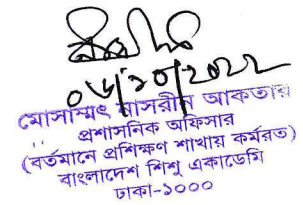 ০৬/১০/২০২২
মোসাম্মৎ নাসরীন আকতার
প্রশাসনিক অফিসার
(বর্তমানে প্রশিক্ষণ শাখায় কর্মরত)
বাংলাদেশ শিশু একাডেমি
ঢাকা-১০০০